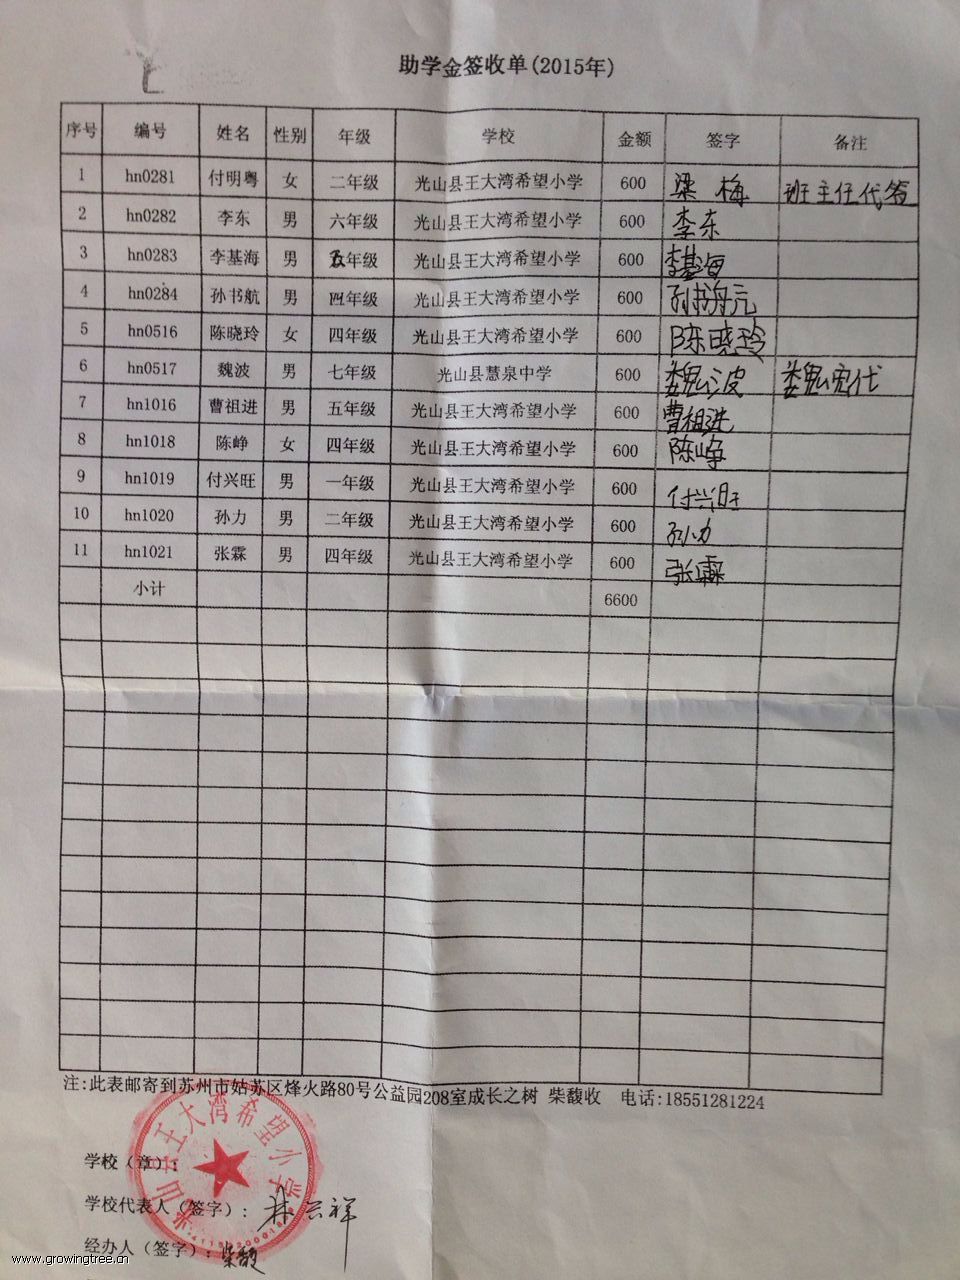 助学金签收单(2015年)
序号 编号 姓名 性别 年级 学校 金额 签字 备注
1 hn0281 付明粤 女 二年级 光山县王大湾希望小学 600 梁梅 班主任代签
2 hn0282 李东 男 六年级 光山县王大湾希望小学 600 李东
3 hn0283 李基海 男 五年级 光山县王大湾希望小学 600 李基海
4 hn0284 孙书航 男 四年级 光山县王大湾希望小学 600 孙书航
5 hn0516 陈晓玲 女 四年级 光山县王大湾希望小学 600 陈晓玲
6 hn0517 魏波 男 七年级 光山县慧泉中学 600 魏波 魏宪代
7 hn1016 曹祖进 男 五年级 光山县王大湾希望小学 600 曹祖进
8 hn1018 陈峥 女 四年级 光山县王大湾希望小学 600 陈峥
9 hn1019 付兴旺 男 一年级 光山县王大湾希望小学 600 付兴旺
10 hn1020 孙力 男 二年级 光山县王大湾希望小学 600 孙力
11 hn1021 张霖 男 四年级 光山县王大湾希望小学 600 张霖
小计 6600
注:此表邮寄到苏州市姑苏区烽火路80号公益园208室成长之树 柴馥收 电话:18551281224
王大湾希望小学
学校（章）：
学校代表人（签字）：
经办人（签字）：柴馥
www.growingtree.cn